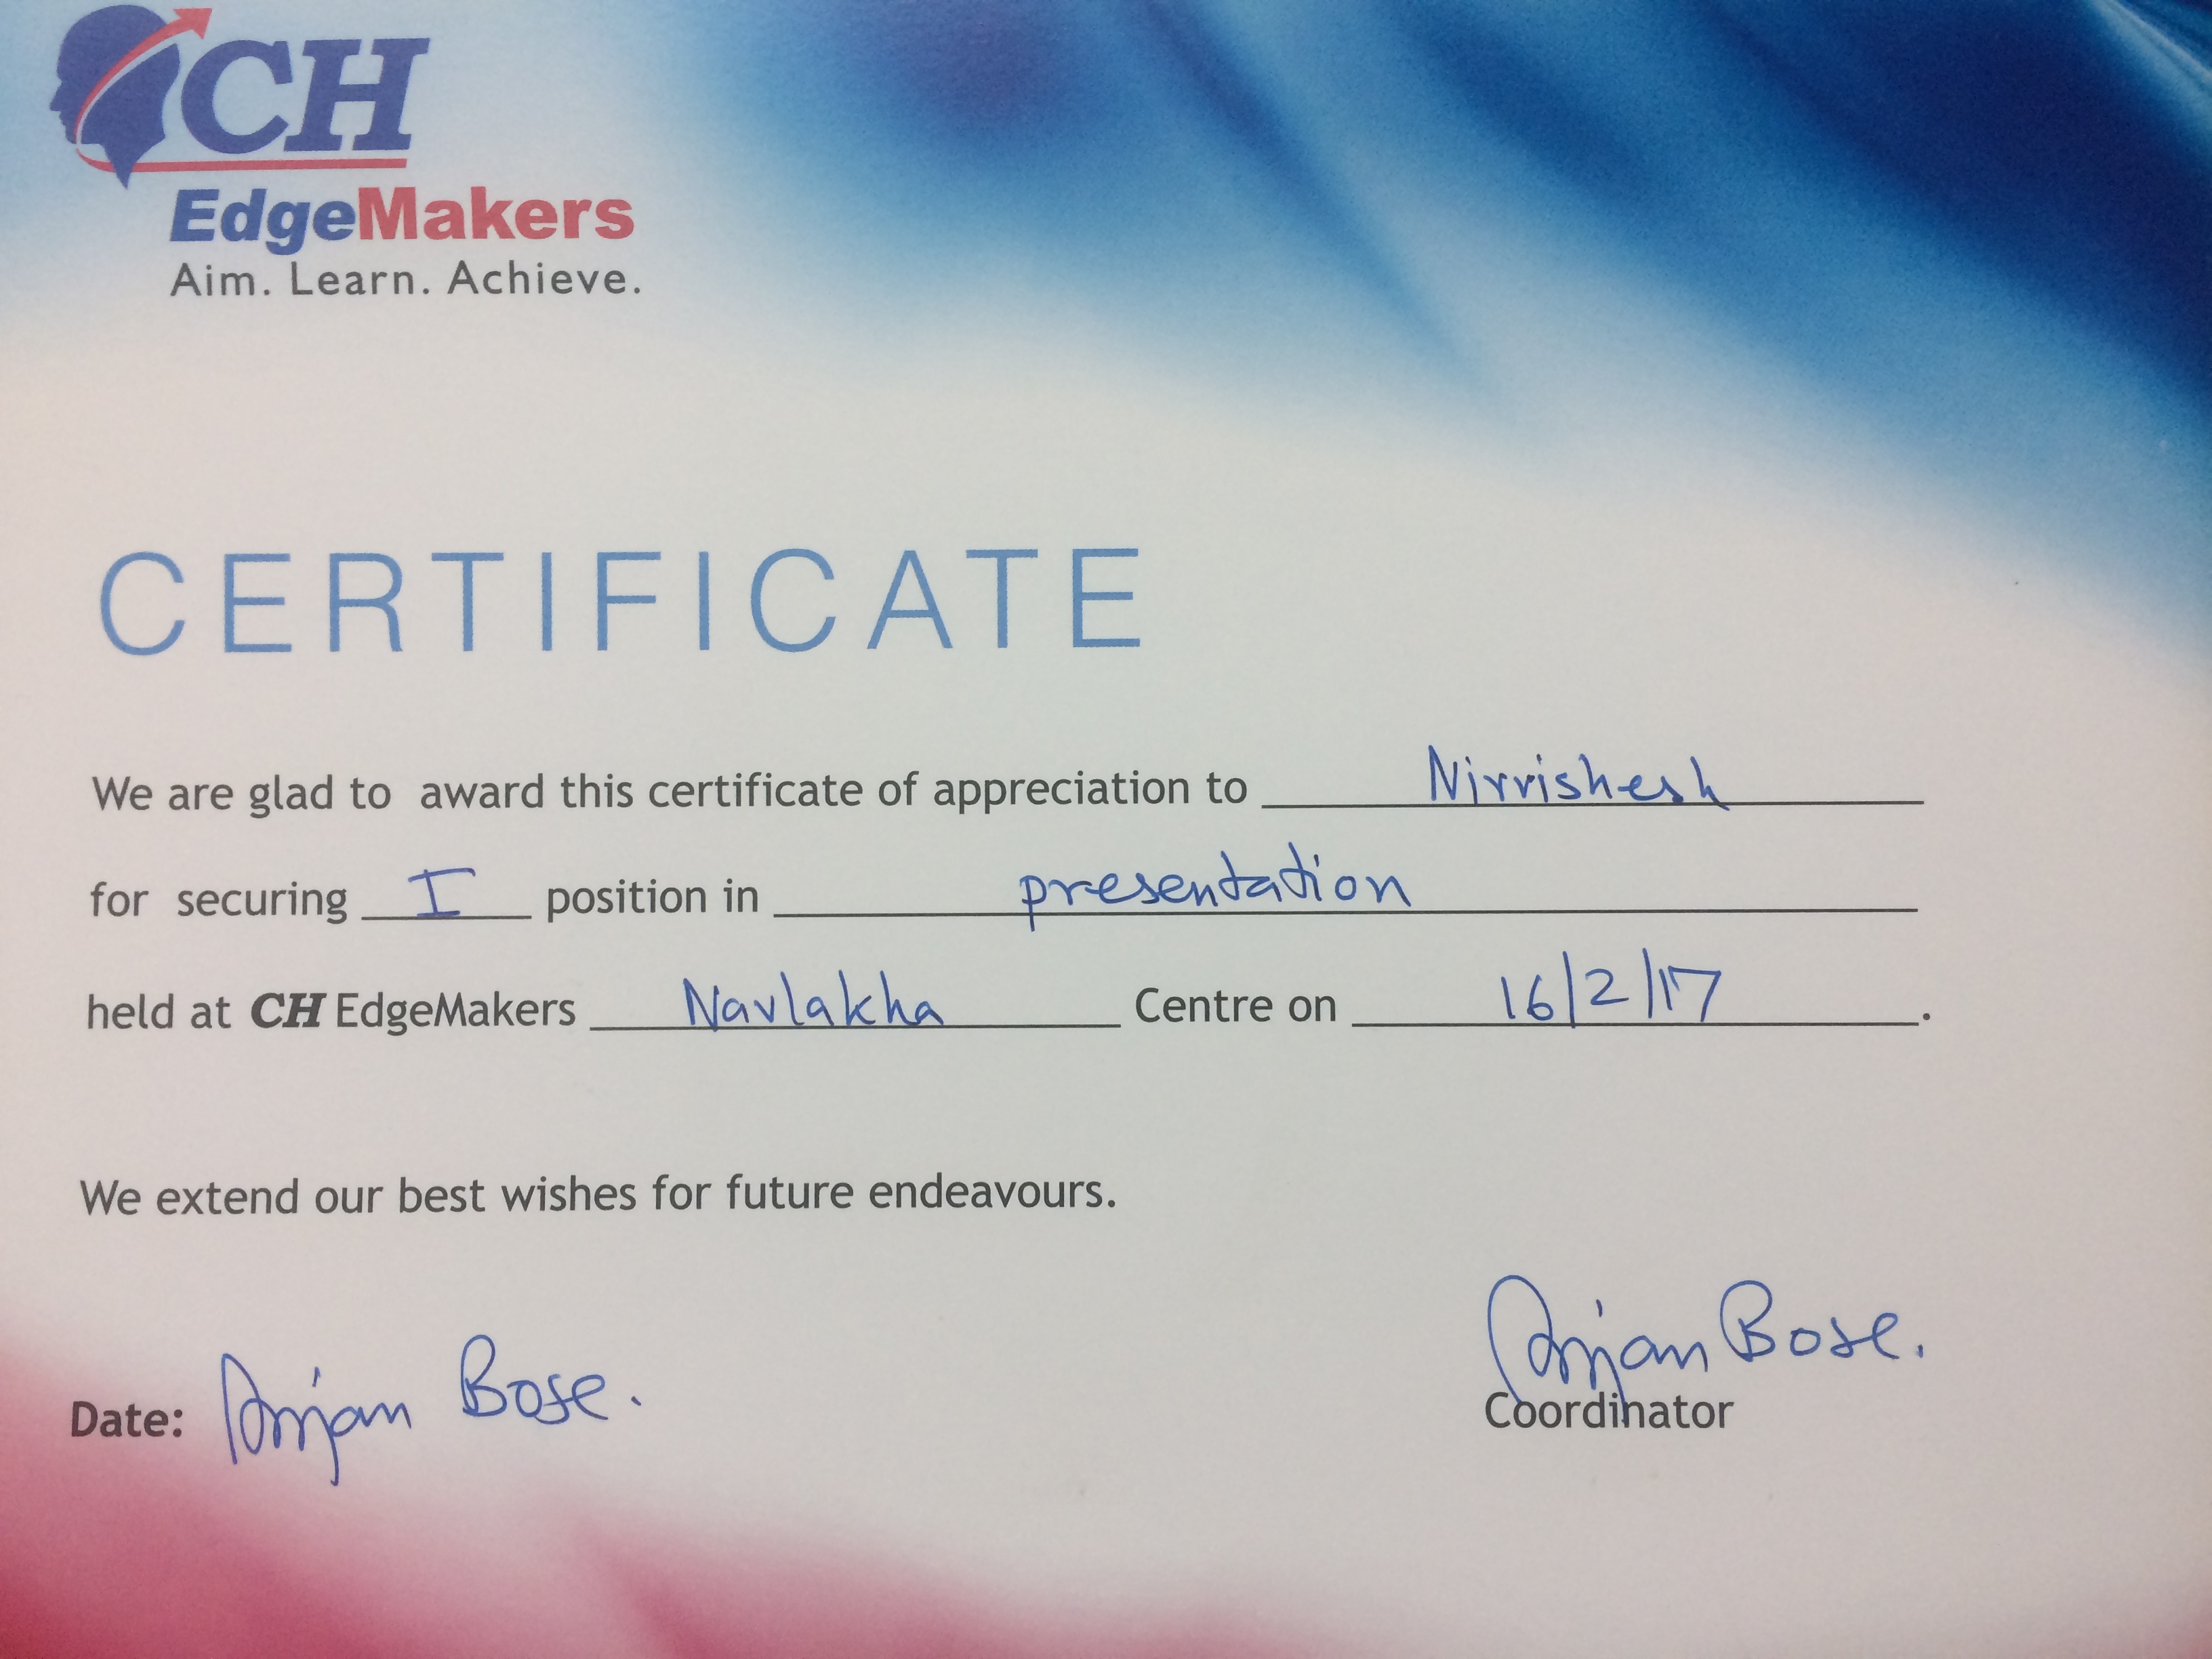 CH
EdgeMakers
Aim. Learn. Achieve.
CERTIFICATE
We are glad to award this certificate of appreciation to Nirvishesh
for securing I position in presentation
held at CH EdgeMakers Navlakha Centre on 16/2/17.
We extend our best wishes for future endeavours.
Arijan Bose.
Date: Arijan Bose.
Coordinator